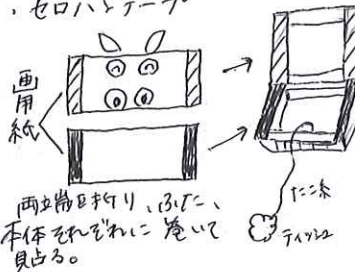 ・セロハンテープ
画用紙
両端を折り、ふた、
本体それぞれに巻いて
貼る。
たこ糸
ティッシュ